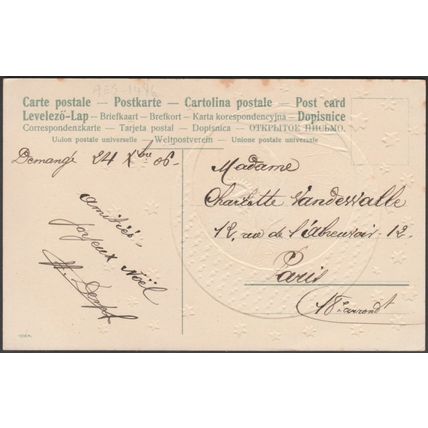 Carte postale — Postkarte — Cartolina postale — Post card
Levelező-Lap — Briefkaart — Brefkort — Karta korespondencyjna — Dopisnice
Correspondenzkarte — Tarjeta postal — Dopisnica — ОТКРЫТОЕ ПИСЬМО.
Union postale universelle — Weltpostverein — Unione postale universale
Demangé 24 Xbre 06-
amitiés -
Joyeux Noël
Madame
Charlotte Vandewalle
12, rue de l'Abreuvoir - 12
Paris
(18e arrondt